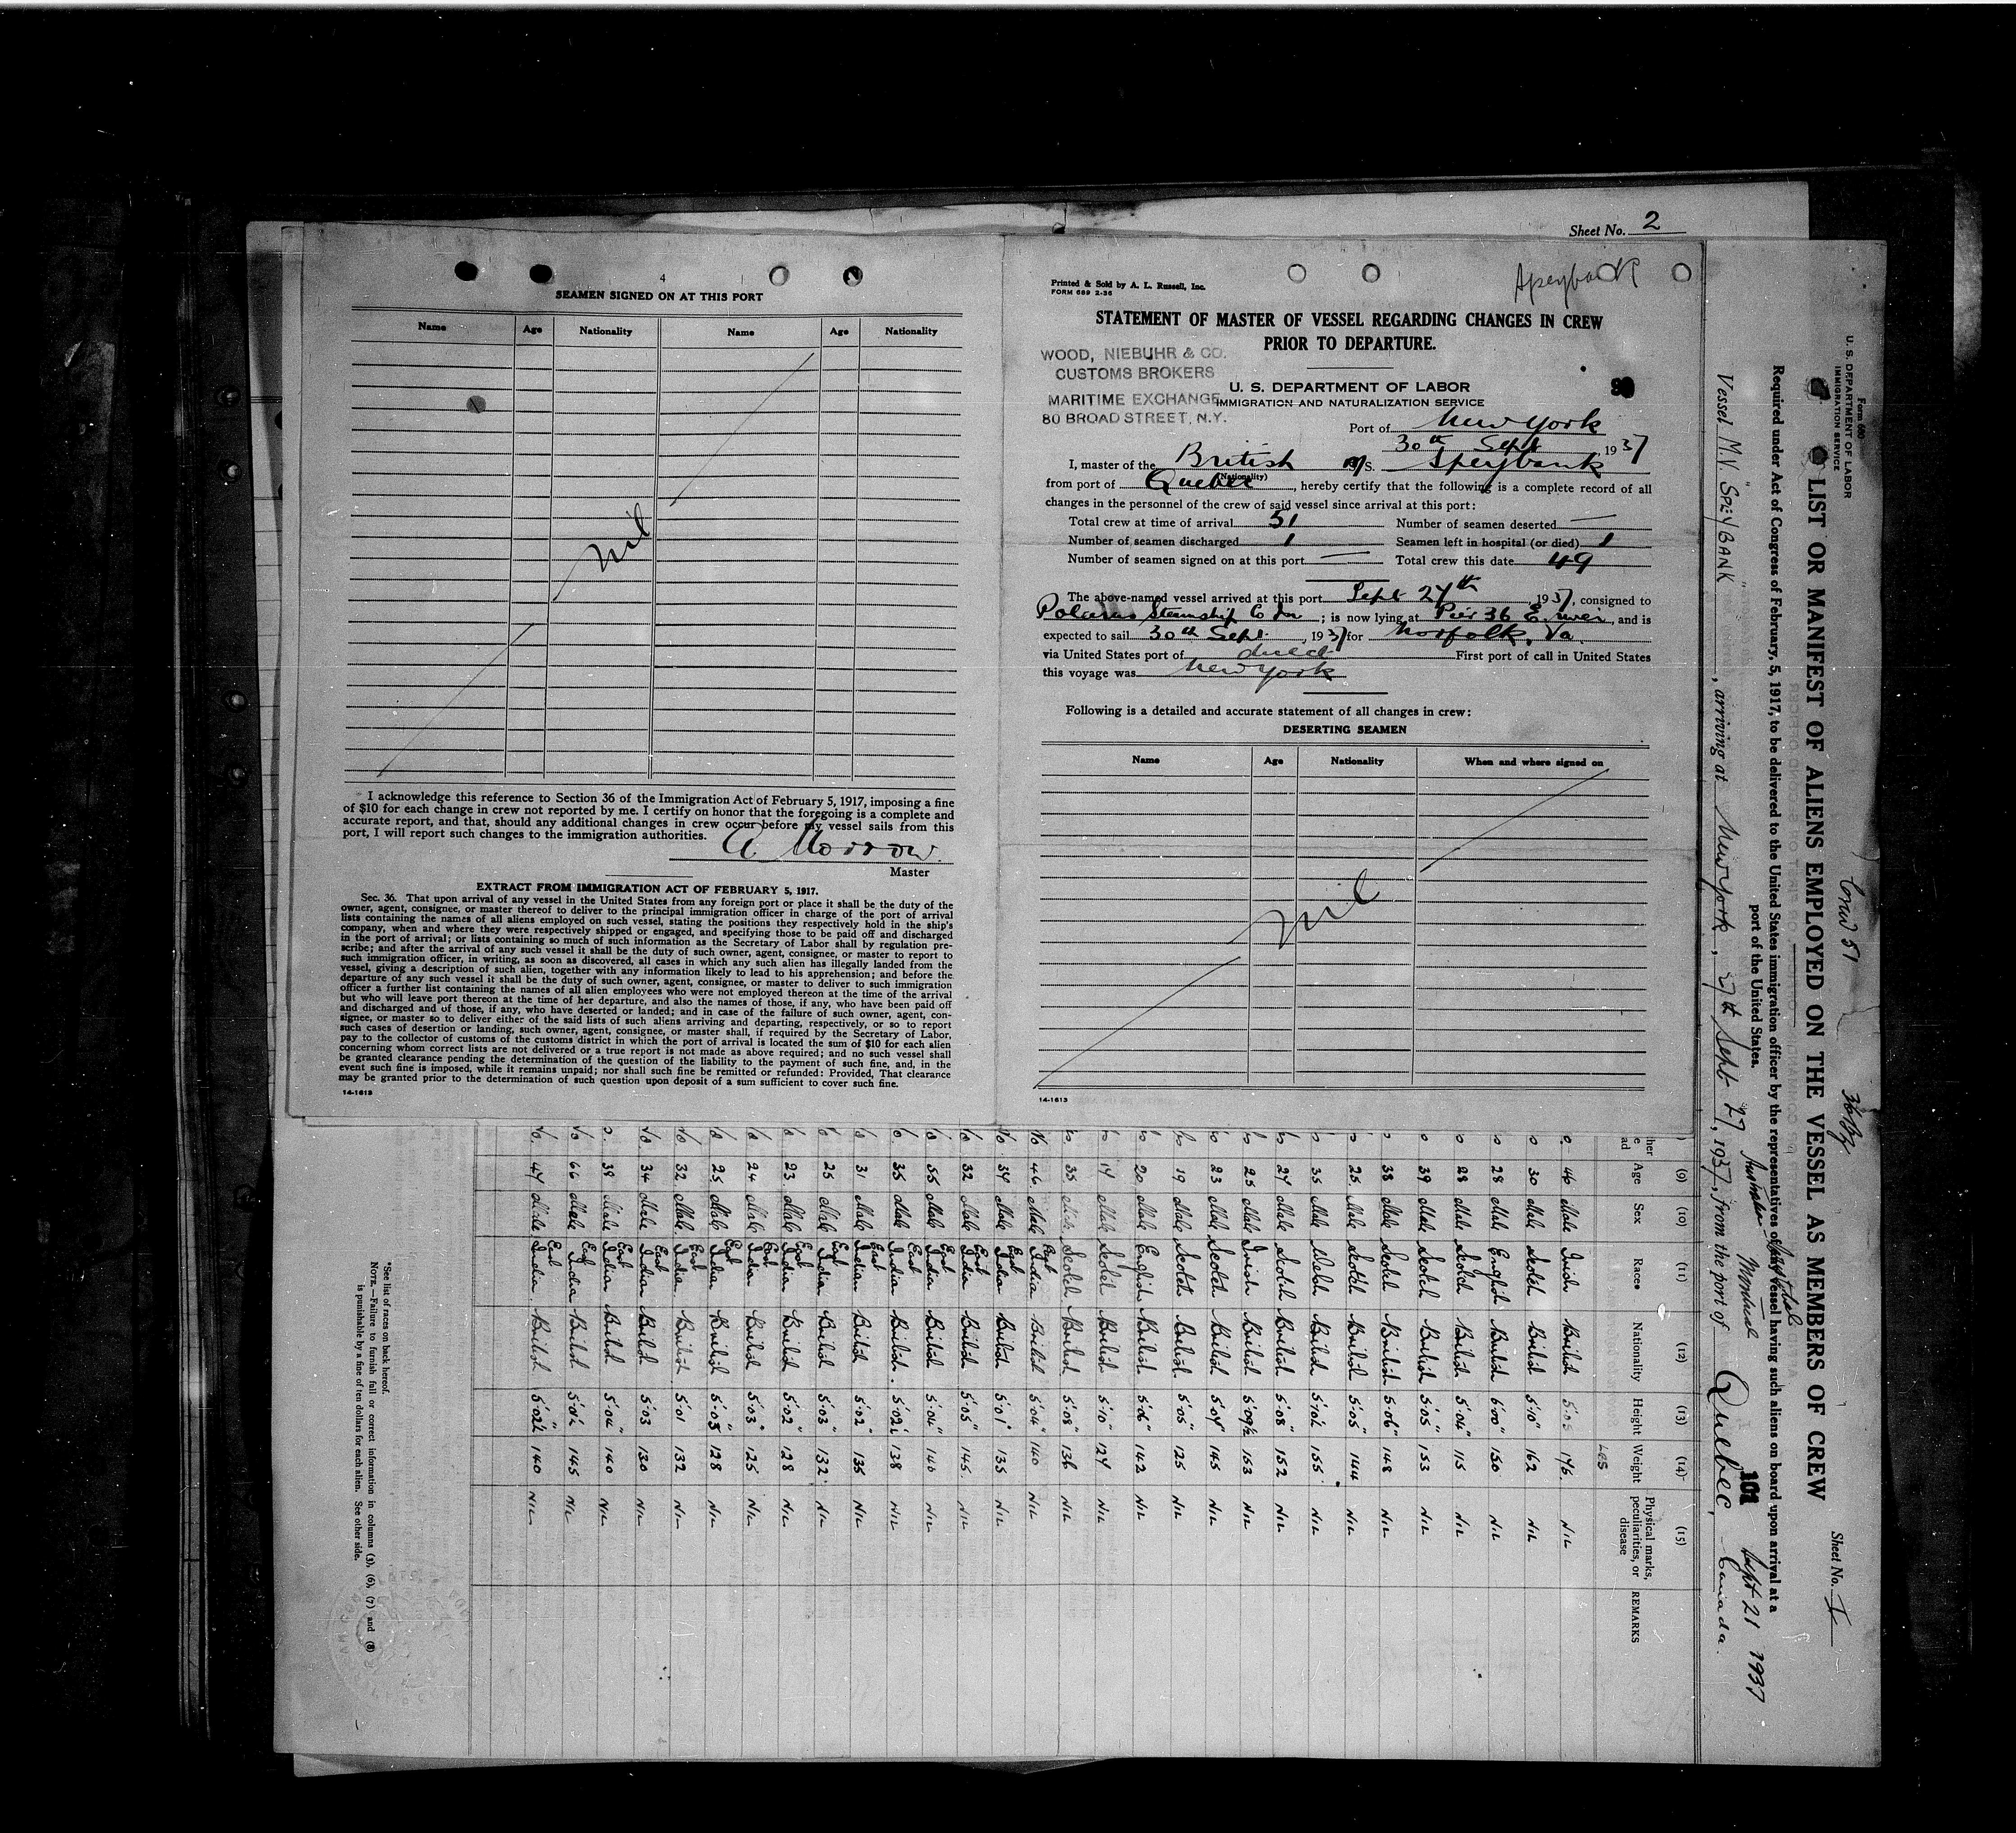 Sheet No. 2
4
SEAMEN SIGNED ON AT THIS PORT
Name Age Nationality Name Age Nationality
Nil
I acknowledge this reference to Section 36 of the Immigration Act of February 5, 1917, imposing a fine
of $10 for each change in crew not reported by me. I certify on honor that the foregoing is a complete and
accurate report, and that, should any additional changes in crew occur before my vessel sails from this
port, I will report such changes to the immigration authorities.
A Morrow
Master
EXTRACT FROM IMMIGRATION ACT OF FEBRUARY 5, 1917.
Sec. 36. That upon arrival of any vessel in the United States from any foreign port or place it shall be the duty of the
owner, agent, consignee, or master thereof to deliver to the principal immigration officer in charge of the port of arrival
lists containing the names of all aliens employed on such vessel, stating the positions they respectively hold in the ship's
company, when and where they were respectively shipped or engaged, and specifying those to be paid off and discharged
in the port of arrival; or lists containing so much of such information as the Secretary of Labor shall by regulation pre-
scribe; and after the arrival of any such vessel it shall be the duty of such owner, agent, consignee, or master to report to
such immigration officer, in writing, as soon as discovered, all cases in which any such alien has illegally landed from the
vessel, giving a description of such alien, together with any information likely to lead to his apprehension; and before the
departure of any such vessel it shall be the duty of such owner, agent, consignee, or master to deliver to such immigration
officer a further list containing the names of all alien employees who were not employed thereon at the time of the arrival
but who will leave port thereon at the time of her departure, and also the names of those, if any, who have been paid off
and discharged and of those, if any, who have deserted or landed; and in case of the failure of such owner, agent, con-
signee, or master so to deliver either of the said lists of such aliens arriving and departing, respectively, or so to report
such cases of desertion or landing, such owner, agent, consignee, or master shall, if required by the Secretary of Labor,
pay to the collector of customs of the customs district in which the port of arrival is located the sum of $10 for each alien
concerning whom correct lists are not delivered or a true report is not made as above required; and no such vessel shall
be granted clearance pending the determination of the question of the liability to the payment of such fine, and, in the
event such fine is imposed, while it remains unpaid; nor shall such fine be remitted or refunded: Provided, That clearance
may be granted prior to the determination of such question upon deposit of a sum sufficient to cover such fine.
14-1613
Speybank
Printed & Sold by A. L. Russell, Inc.
FORM 689 2-36
STATEMENT OF MASTER OF VESSEL REGARDING CHANGES IN CREW
PRIOR TO DEPARTURE.
WOOD, NIEBUHR & CO.
CUSTOMS BROKERS
MARITIME EXCHANGE
80 BROAD STREET, N.Y.
U. S. DEPARTMENT OF LABOR
IMMIGRATION AND NATURALIZATION SERVICE
Port of New York
30th Sept, 1937
I, master of the British M/S. Speybank
(Nationality)
from port of Quebec, hereby certify that the following is a complete record of all
changes in the personnel of the crew of said vessel since arrival at this port:
Total crew at time of arrival 51 Number of seamen deserted —
Number of seamen discharged 1 Seamen left in hospital (or died) 1
Number of seamen signed on at this port — Total crew this date 49
The above-named vessel arrived at this port Sept 27th, 1937, consigned to
Polarus Steamship Co Inc; is now lying at Pier 36 E. River, and is
expected to sail 30th Sept., 1937 for Norfolk, Va
via United States port of direct First port of call in United States
this voyage was New York
Following is a detailed and accurate statement of all changes in crew:
DESERTING SEAMEN
Name Age Nationality When and where signed on
Nil
14-1613
Form 680
U. S. DEPARTMENT OF LABOR
IMMIGRATION SERVICE
Crew 51
Sheet No. 1
LIST OR MANIFEST OF ALIENS EMPLOYED ON THE VESSEL AS MEMBERS OF CREW
Required under Act of Congress of February, 5, 1917, to be delivered to the United States immigration officer by the representatives of any vessel having such aliens on board upon arrival at a
port of the United States.
Montreal 101 Sept 21 1937
Vessel M.V. "SPEYBANK", arriving at New York, 27th Sept 27, 1937, from the port of Quebec, Canada.
(9) (10) (11) (12) (13) (14) (15)
Age Sex Race* Nationality Height Weight Physical marks, peculiarities, or disease REMARKS
LBS
46 Male Irish British 176 NIL
30 Male Scotch British 5'10" 162 NIL
28 Male English British 6'00" 150 NIL
28 Male Scotch British 5'04" 115 NIL
39 Male Scotch British 5'05" 153 NIL
38 Male Scotch British 5'06" 148 NIL
25 Male Scotch British 5'05" 144 NIL
35 Male Welsh British 5'10½ 155 NIL
27 Male Scotch British 5'08" 152 NIL
25 Male Irish British 5'09½ 163 NIL
23 Male Scotch British 5'07" 145 NIL
19 Male Scotch British 5'05" 125 NIL
20 Male English British 5'06" 142 NIL
17 Male Scotch British 5'10" 127 NIL
35 Male Scotch British 5'08" 136 NIL
46 Male East India British 5'04" 140 NIL
37 Male East India British 5'01" 135 NIL
32 Male East India British 5'05" 145 NIL
55 Male East India British 5'04" 140 NIL
35 Male East Indian British 5'02½ 138 NIL
31 Male East Indian British 5'02" 135 NIL
25 Male East Indian British 5'03" 132 NIL
23 Male East Indian British 5'02" 128 NIL
24 Male East India British 5'03" 125 NIL
25 Male East India British 5'03" 128 NIL
32 Male East India British 5'01 132 NIL
34 Male East Indian British 5'03 130 NIL
38 Male East Indian British 5'04" 140 NIL
66 Male East India British 145 NIL
47 Male East Indian British 5'02½ 140 NIL
*See list of races on back hereof.
NOTE.—Failure to furnish full or correct information in columns (3), (6), (7) and (8)
is punishable by a fine of ten dollars for each alien. See other side.